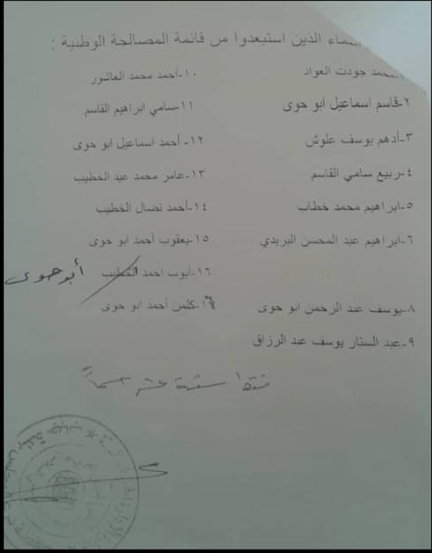 الذين استبعدوا من قائمة المصالحة الوطنية :
محمد جودت العواد
٢-قاسم اسماعيل ابو حوى
٣-أدهم يوسف علوش
٤-ربيع سامي القاسم
٥-ابراهيم محمد خطاب
٦-ابراهيم عبد المحسن البريدي
٨-يوسف عبد الرحمن ابو حوى
٩-عبد الستار يوسف عبد الرزاق
١٠-أحمد محمد العاشور
١١-سامي ابراهيم القاسم
١٢-أحمد اسماعيل ابو حوى
١٣-عامر محمد عيد الخطيب
١٤-أحمد نضال الخطيب
١٥-يعقوب أحمد ابو حوى
١٦-أيوب احمد الخطيب أبو حوى
كلمن أحمد ابو حوى
فقط ستة عشر اسماً